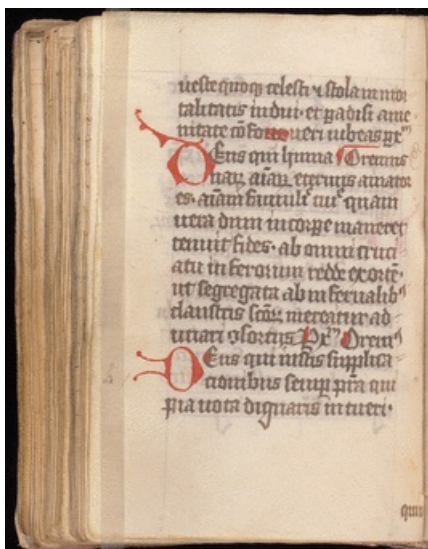 ueste quoq celesti ⁊ stola inmor
talitatis indui · et padisi ame
nitate cōfoueri iubeas px̄
Eus qui huma Oremus
naꝝ aīaꝝ eternus amator
es · aīam famuli tui quam
uera dum in corpe maneret
tenuit fides · ab omni cruci
atu inferorum redde exortē ·
ut segregata ab infernalib
claustris scōꝝ mereatur ad
unari ꝯsortijs Px̄ Orem
Deus qui iustis supplica
tionibus semp pſta qui
pia uota dignaris intueri ·